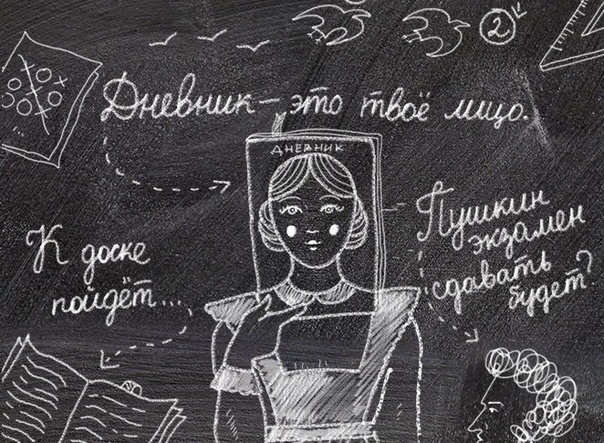 2
Дневник – это твоё лицо.
ДНЕВНИК
Пушкин
экзамен
сдавать
будет?
К доске
пойдёт...